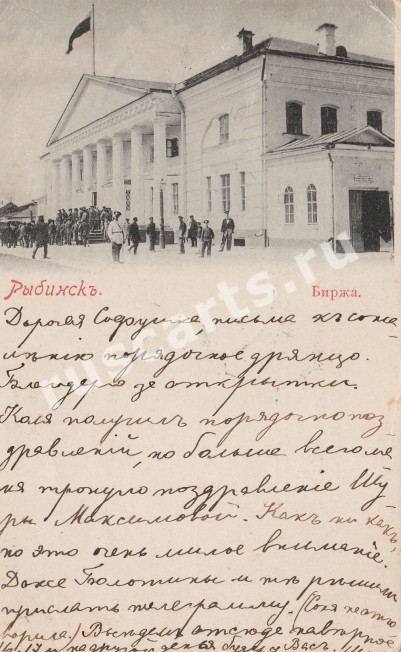 Рыбинскъ. Биржа.
Дорогая Софушка, письма къ сожа
лѣнію порядочное дрянцо.
Благодарю за открытки.
Коля получилъ порядочно поз
дравленій, но больше всего ме
ня тронуло поздравленіе Шу
ры Максимовой. Какъ ни какъ,
но это очень милое вниманіе.
Даже Болотины и тѣ рѣшили
прислать телеграмму.
Выѣдемъ отсюда навѣрное
ruscarts.ru